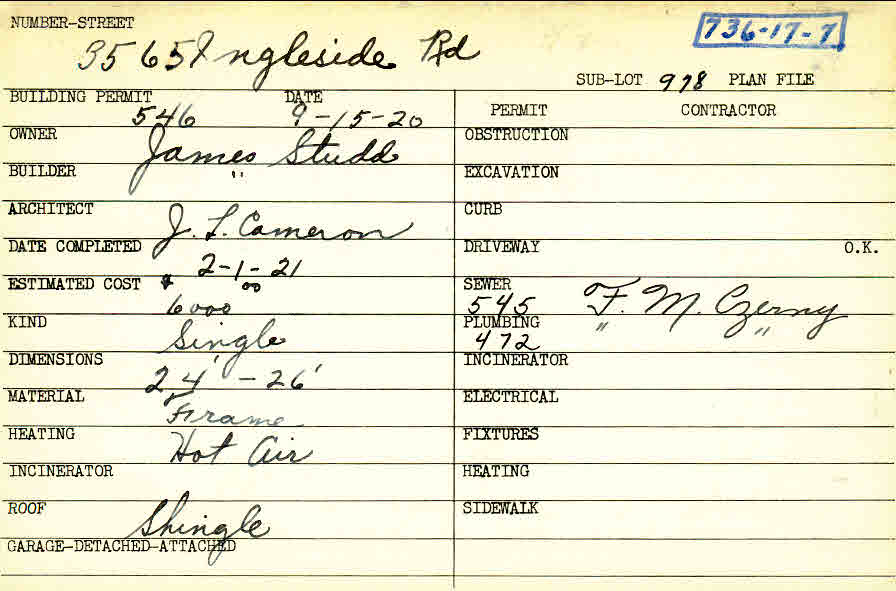 NUMBER-STREET
3565 Ingleside Rd
736-17-7
SUB-LOT 978 PLAN FILE
BUILDING PERMIT DATE
546 9-15-20
OWNER
James Studd
BUILDER
"
ARCHITECT
J. L. Cameron
DATE COMPLETED
2-1-21
ESTIMATED COST $
6000 00
KIND
Single
DIMENSIONS
24' - 26'
MATERIAL
Frame
HEATING
Hot Air
INCINERATOR
ROOF
Shingle
GARAGE-DETACHED-ATTACHED
PERMIT CONTRACTOR
OBSTRUCTION
EXCAVATION
CURB
DRIVEWAY O.K.
SEWER
545 F. M. Czerny
PLUMBING " "
472
INCINERATOR
ELECTRICAL
FIXTURES
HEATING
SIDEWALK